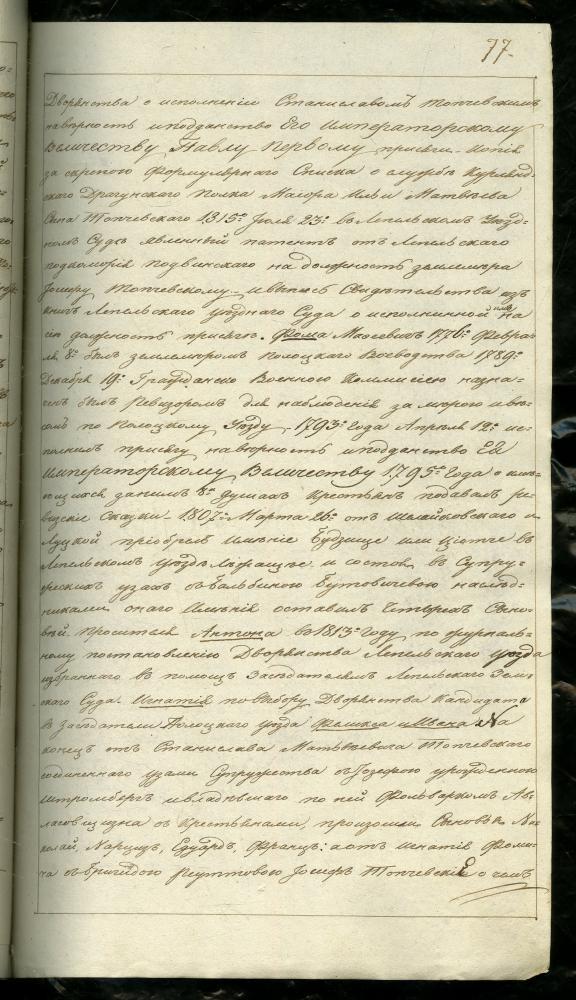 77.
Дворянства о исполненіи Станиславомъ Топчевскимъ
на верность и подданство Его Императорскому
Величеству Павлу Первому присяги. Копія
за скрепою Формулярнаго Списка о службе Курлянд-
скаго Драгунскаго Полка Маіора Ильи Матвѣева
Сына Топчевскаго 1315го Іюля 23го въ Лепельскомъ Уезд-
номъ Судѣ явленный патентъ отъ Лепельскаго
подкоморія Подвинскаго на должность землемѣра
Іосифу Топчевскому и выпись Свидѣтельства изъ
книгъ Лепельскаго уезднаго Суда о исполненной имъ на
сію должность присяге. Фома Моисеевичъ 1776го Февра-
ля 8го былъ землемеромъ Полоцкаго Воеводства 1789го
Декабря 19го Гражданско Военною Коммисіею назна-
ченъ былъ Ревизоромъ для наблюденія за мерою и ве-
сомъ по Полоцкому Уезду. 1793го года Апреля 12го ис-
полнилъ присягу на верность и подданство Ея
Императорскому Величеству 1795го года о имѣ-
ющихся за нимъ 8ми душахъ крестьянъ подавалъ ре-
визскіе сказки. 1807го Марта 26го отъ Шалайковскаго и
Луцкой пріобрелъ имѣніе Будзище или въ
Лепельскомъ уездѣ лежащее и состоя въ Супру-
жескихъ узахъ съ Бальбиною Бутовичевою наслѣд-
никами онаго Имѣнія оставилъ Четырехъ Сыно-
вей просителя Антона въ 1813мъ году по журналь-
ному постановленію Дворянства Лепельскаго уезда
избраннаго въ помощь Заседателямъ Лепельскаго Зем-
скаго Суда. Игнатія по выбору Дворянства Кандидата
въ Заседатели Полоцкаго уезда Феликса и Ивана На
конецъ отъ Станислава Матвѣевича Топчевскаго
соединеннаго узами Супружества съ Іозефою урожденною
Штромбергъ и владевшаго по ней Фольваркомъ Ав-
ласовщизна съ крестьянами, произошли Сыновья Ни-
колай, Нарцизъ, Едуардъ, Францъ: а отъ Игнатія Фоми-
ча съ Бригидою Реуттовою Іосифъ Топчевскіе о чемъ